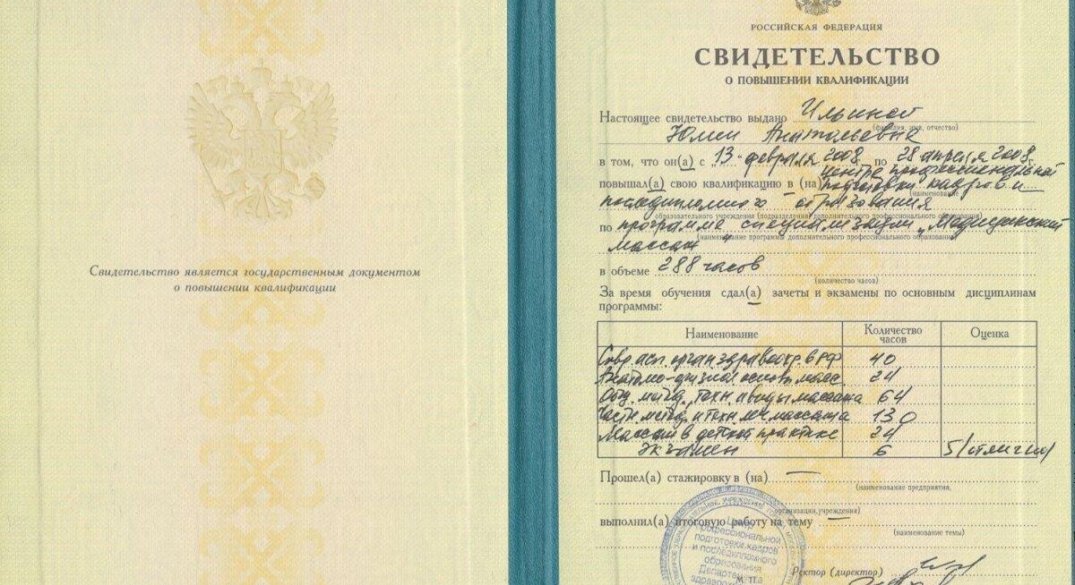 Свидетельство является государственным документом
о повышении квалификации
РОССИЙСКАЯ ФЕДЕРАЦИЯ
СВИДЕТЕЛЬСТВО
О ПОВЫШЕНИИ КВАЛИФИКАЦИИ
Настоящее свидетельство выдано Ильиной
(фамилия, имя, отчество)
Юлии Анатольевне
в том, что он(а) с „13" февраля 2008 по 28 апреля 2008
повышал(а) свою квалификацию в (на) центре профессиональной
подготовки кадров и
(наименование
последипломного образования
образовательного учреждения (подразделения) дополнительного профессионального образования)
по программе специализации „Медицинский
(наименование программы дополнительного профессионального образования)
массаж"
в объеме 288 часов
(количество часов)
За время обучения сдал(а) зачеты и экзамены по основным дисциплинам
программы:
Наименование Количество часов Оценка
Совр. асп. орган. здравоохр. в РФ 40
Анатомо-физиол основы масс. 24
Общ. метод., техн. и виды массажа 64
Частн. метод. и техн. леч. массажа 130
Массаж в детской практике 24
Экзамен 6 5 (отлично)
Прошел(а) стажировку в (на) —
(наименование предприятия,
организации, учреждения)
выполнил(а) итоговую работу на тему —
(наименование темы)
Центр
профессиональной
подготовки кадров
и последипломного
образования
Департамента
М. П.
Ректор (директор)